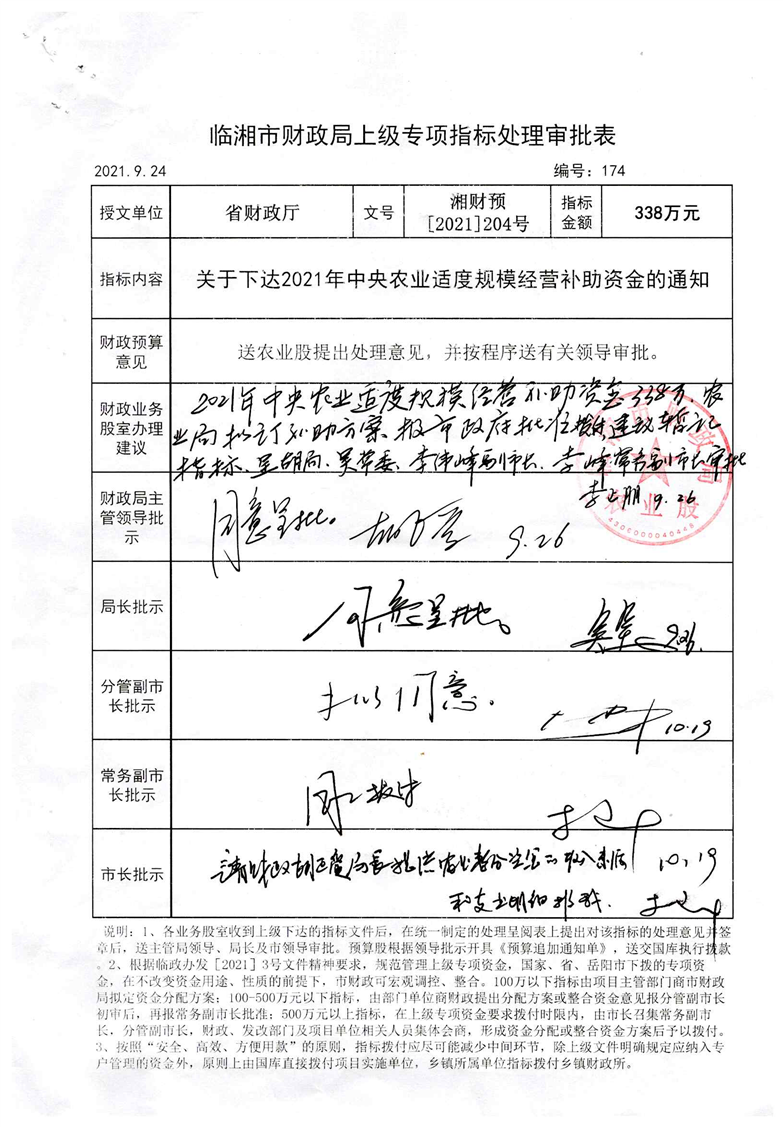 临湘市财政局上级专项指标处理审批表
2021.9.24 编号：174
授文单位 省财政厅 文号 湘财预[2021]204号 指标金额 338万元
指标内容 关于下达2021年中央农业适度规模经营补助资金的通知
财政预算意见 送农业股提出处理意见，并按程序送有关领导审批。
财政业务股室办理建议
2021年中央农业适度规模经营补助资金338万，农
业局拟订补助方案，报市政府批准 建议暂记
指标。呈胡局、吴常委、李伟峰副市长、李峰常务副市长审批
9.26
农业股
4306000040448
财政局主管领导批示 同意呈批。 9.26
局长批示 同意呈批。
分管副市长批示 拟同意。 10.19
常务副市长批示
市长批示 10.19
说明：1、各业务股室收到上级下达的指标文件后，在统一制定的处理呈阅表上提出对该指标的处理意见并签
章后，送主管局领导、局长及市领导审批。预算股根据领导批示开具《预算追加通知单》，送交国库执行拨款
。2、根据临政办发［2021］3号文件精神要求，规范管理上级专项资金，国家、省、岳阳市下拨的专项资
金，在不改变资金用途、性质的前提下，市财政可宏观调控、整合。100万以下指标由项目主管部门商市财政
局拟定资金分配方案；100-500万元以下指标，由部门单位商财政提出分配方案或整合资金意见报分管副市长
初审后，再报常务副市长批准；500万元以上指标，在上级专项资金要求拨付时限内，由市长召集常务副市
长，分管副市长，财政、发改部门及项目单位相关人员集体会商，形成资金分配或整合资金方案后予以拨付。
3、按照“安全、高效、方便用款”的原则，指标拨付应尽可能减少中间环节，除上级文件明确规定应纳入专
户管理的资金外，原则上由国库直接拨付项目实施单位，乡镇所属单位指标拨付乡镇财政所。